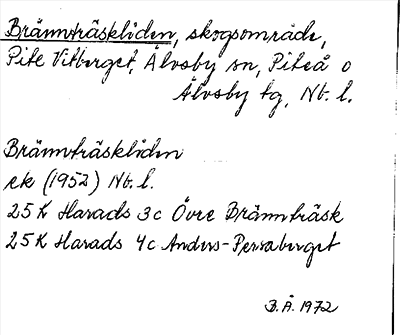 Brännträskliden, skogsområde,
Pite Vitberget, Älvsby sn, Piteå o
Älvsby tg, Nb. l.
Brännträskliden
ek (1952) Nb. l.
25 K Harads 3c Övre Brännträsk
25 K Harads 4c Anders-Persaberget
B.Å. 1972